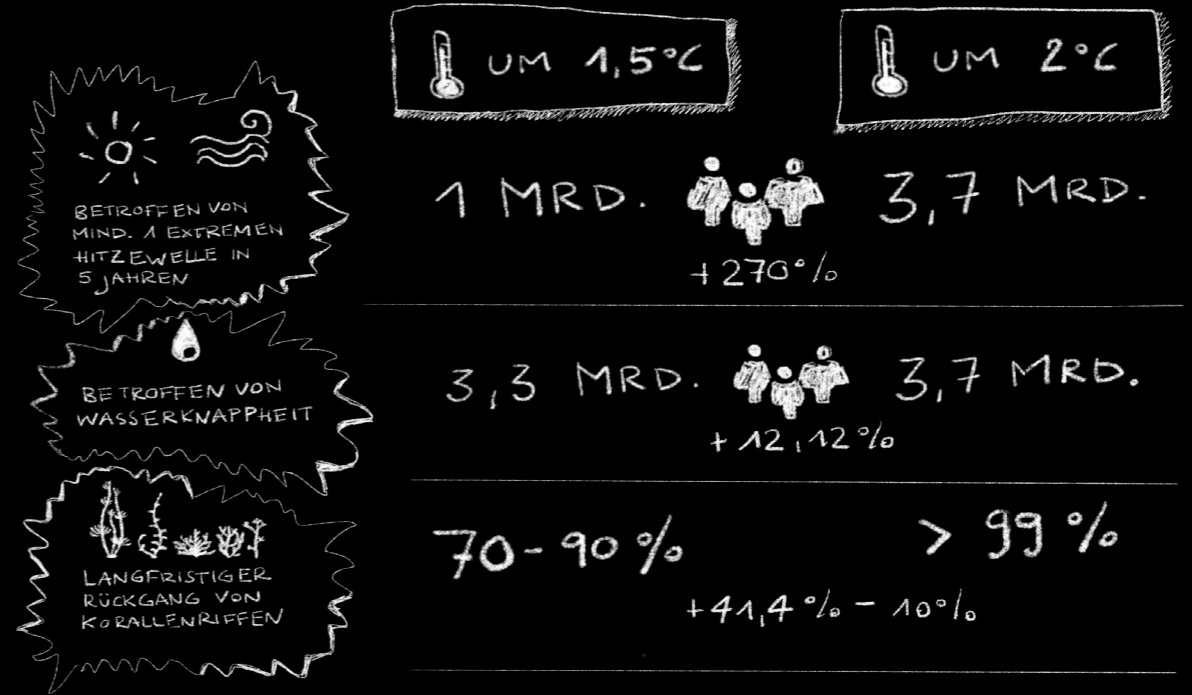 UM 1,5°C
UM 2°C
BETROFFEN VON
MIND. 1 EXTREMEN
HITZEWELLE IN
5 JAHREN
1 MRD.
3,7 MRD.
+270%
BETROFFEN VON
WASSERKNAPPHEIT
3,3 MRD.
3,7 MRD.
+12,12%
LANGFRISTIGER
RÜCKGANG VON
KORALLENRIFFEN
70-90%
> 99%
+41,4% - 10%